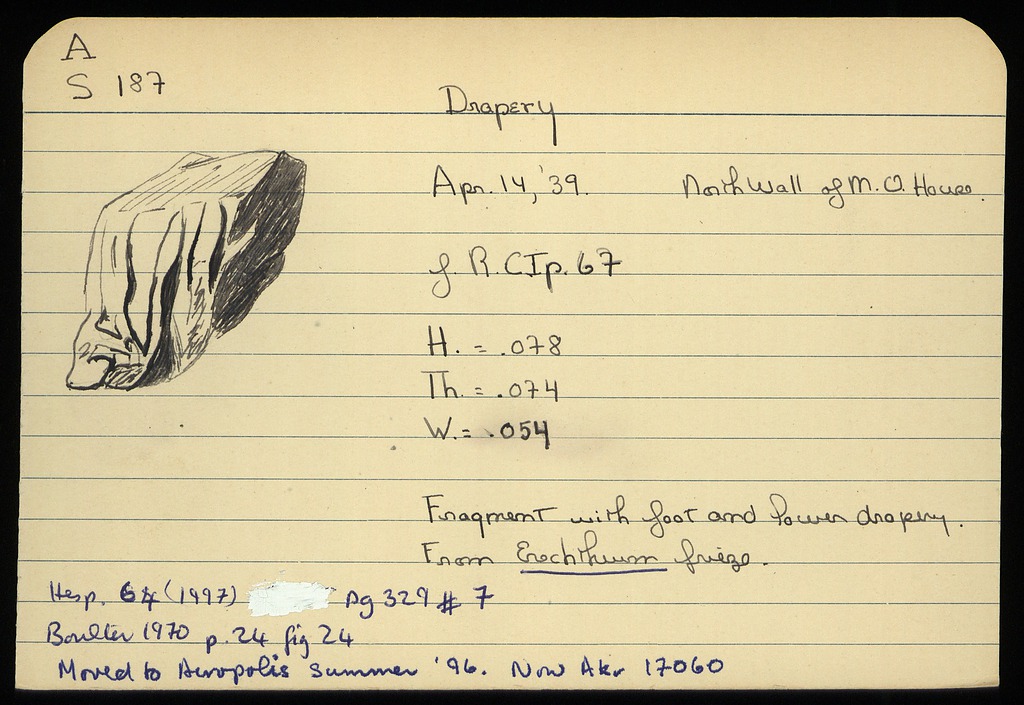 A
S 187
Drapery
Apr. 14, '39. North Wall of M. O. House.
f. R. C I p. 67
H. = .078
Th. = .074
W. = .054
Fragment with foot and lower drapery.
From Erechtheum frieze.
Hesp. (1997) pg 329 # 7
Boulter 1970 p. 24 fig 24
Moved to Acropolis Summer '96. Now Akr 17060